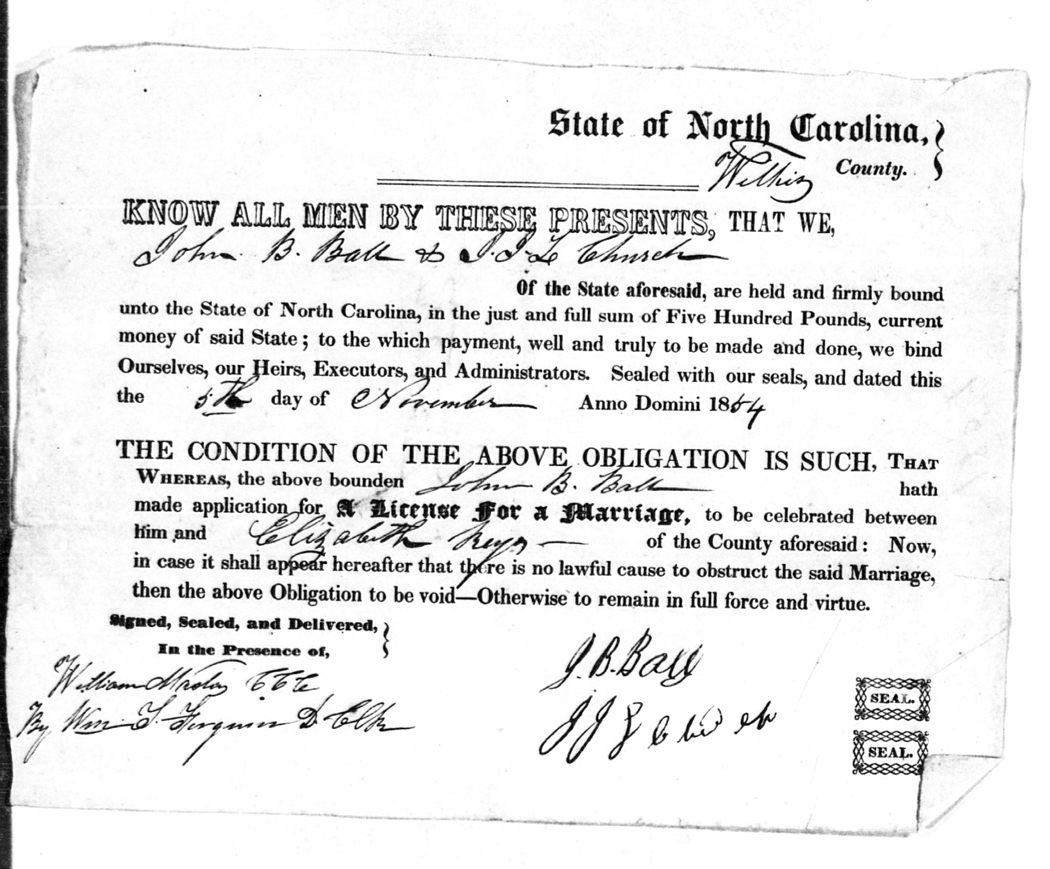 State of North Carolina,
Wilkes County.
KNOW ALL MEN BY THESE PRESENTS, THAT WE,
John B. Ball & J. J. L Church
Of the State aforesaid, are held and firmly bound
unto the State of North Carolina, in the just and full sum of Five Hundred Pounds, current
money of said State; to the which payment, well and truly to be made and done, we bind
Ourselves, our Heirs, Executors, and Administrators. Sealed with our seals, and dated this
the 5th day of November Anno Domini 1864
THE CONDITION OF THE ABOVE OBLIGATION IS SUCH, THAT
WHEREAS, the above bounden John B. Ball hath
made application for A License For a Marriage, to be celebrated between
him and Elizabeth of the County aforesaid: Now,
in case it shall appear hereafter that there is no lawful cause to obstruct the said Marriage,
then the above Obligation to be void—Otherwise to remain in full force and virtue.
Signed, Sealed, and Delivered,
In the Presence of,
William C C C
By Wm. F. Ferguson D Clk
J. B. Ball
J J L Church
SEAL.
SEAL.